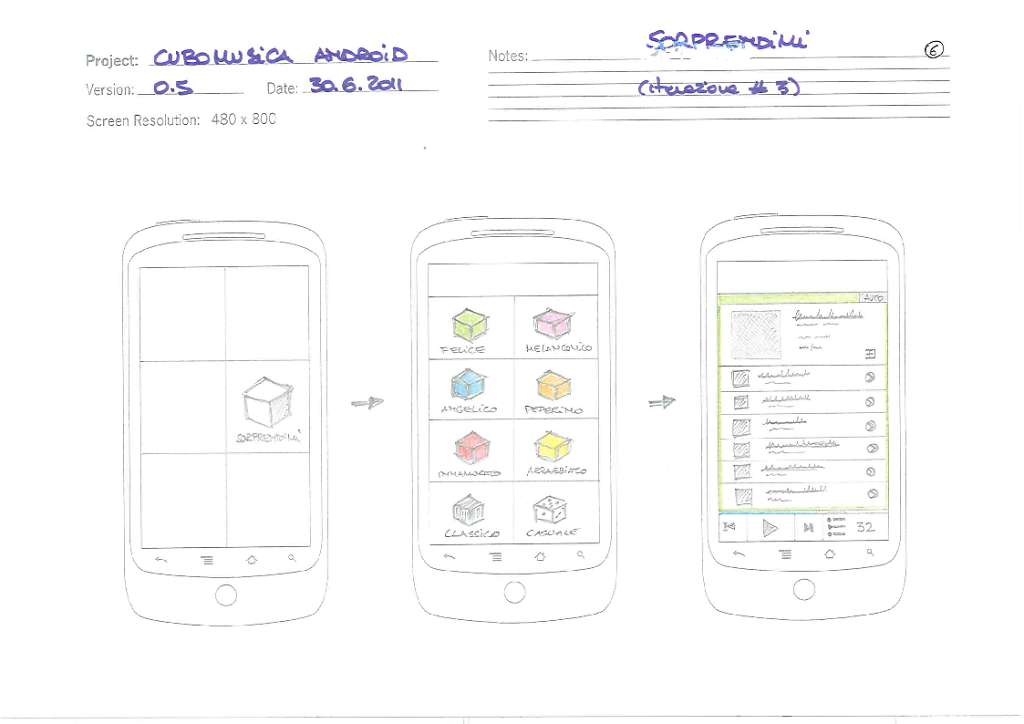 Project: CUBOMUSICA ANDROID
Version: 0.5 Date: 30.6.2011
Screen Resolution: 480 x 800
Notes: SORPRENDIMI
(iterazione # 3)
6
SORPRENDIMI
FELICE MELANCONICO
ANGELICO PEPERINO
INNAMORATO ARRABBIATO
CLASSICO CASUALE
AUTO
32